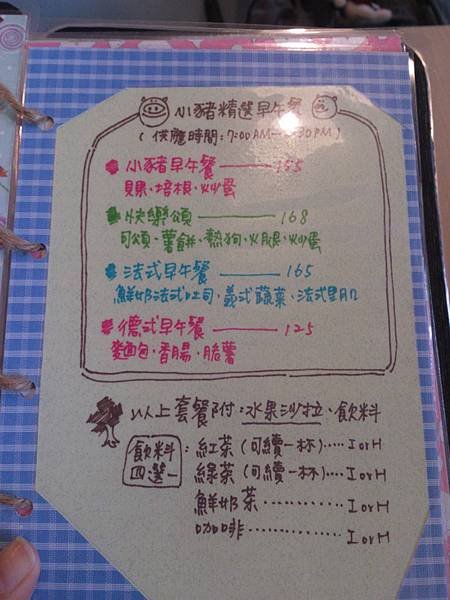 小豬精選早午餐
(供應時間:7:00AM~ :30PM)
小豬早午餐 155
貝果、培根、炒蛋
快樂頌 168
可頌、薯餅、熱狗、火腿、炒蛋
法式早午餐 165
鮮奶法式吐司、義式蔬菜、法式
德式早午餐 125
麵包、香腸、脆薯
以上套餐附:水果沙拉、飲料
飲料四選一:紅茶(可續一杯)....I or H
綠茶(可續一杯)....I or H
鮮奶茶...........I or H
咖啡.............I or H